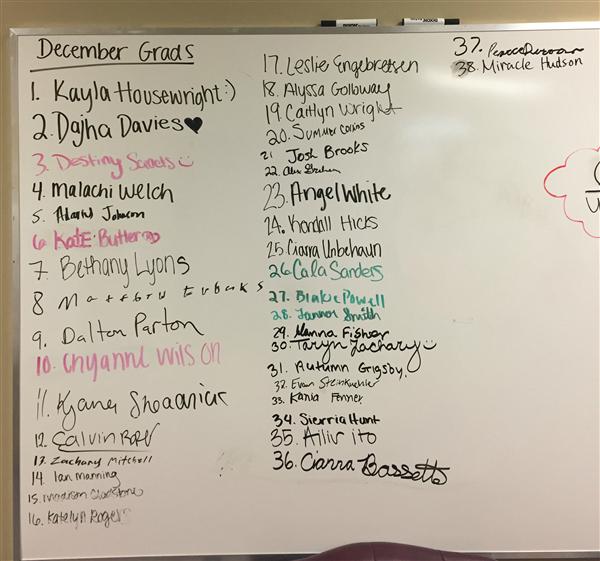 December Grads
1. Kayla Housewright :)
2. Dajha Davies ♥
3. Destiny Sands :)
4. Malachi Welch
5. Johnson
6. Kate Butler
7. Bethany Lyons
8
9. Dalton Parton
10. Chyanne Wilson
11. Kyana
12. Calvin
13. Zachary Mitchell
14. Ian Manning
15. Madison Gladstone
16. Katelyn Rogers
17. Leslie Engebretsen
18. Alyssa Golloway
19. Caitlyn Wright
20. Summer Collins
21 Josh Brooks
22. Alex Graham
23. Angel White
24. Kendall Hicks
25 Ciarra Unbehaun
26 Cala Sanders
27. Blake Powell
28. Tanner Smith
29. Fisher
30. Taryn Zachary :)
31. Autumn Grigsby
32. Evan Steinkuehler
33. Kania Fenner
34. Sierria Hunt
35. ito
36. Cianna Bassett
37.
38. Miracle Hudson